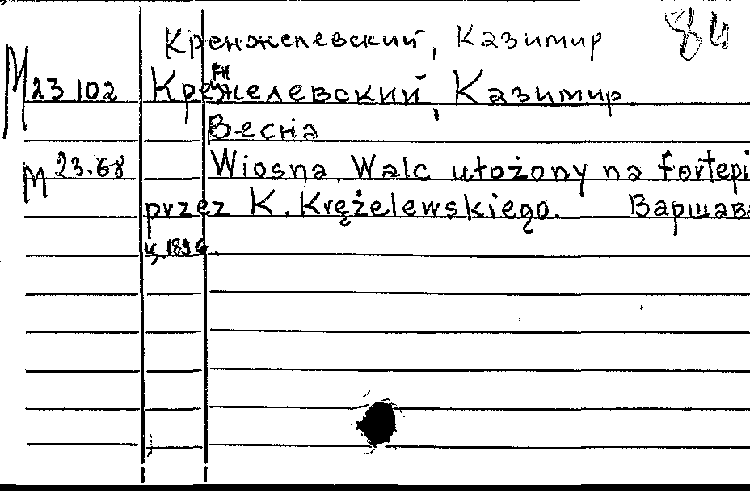 Кренжелевский, Казимир 84
М 23 102 Крежелевский, Казимир
н
Весна
М 23.68 Wiosna. Walc ułożony na fortepi
przez K. Krężelewskiego. Варшав
ц. 189